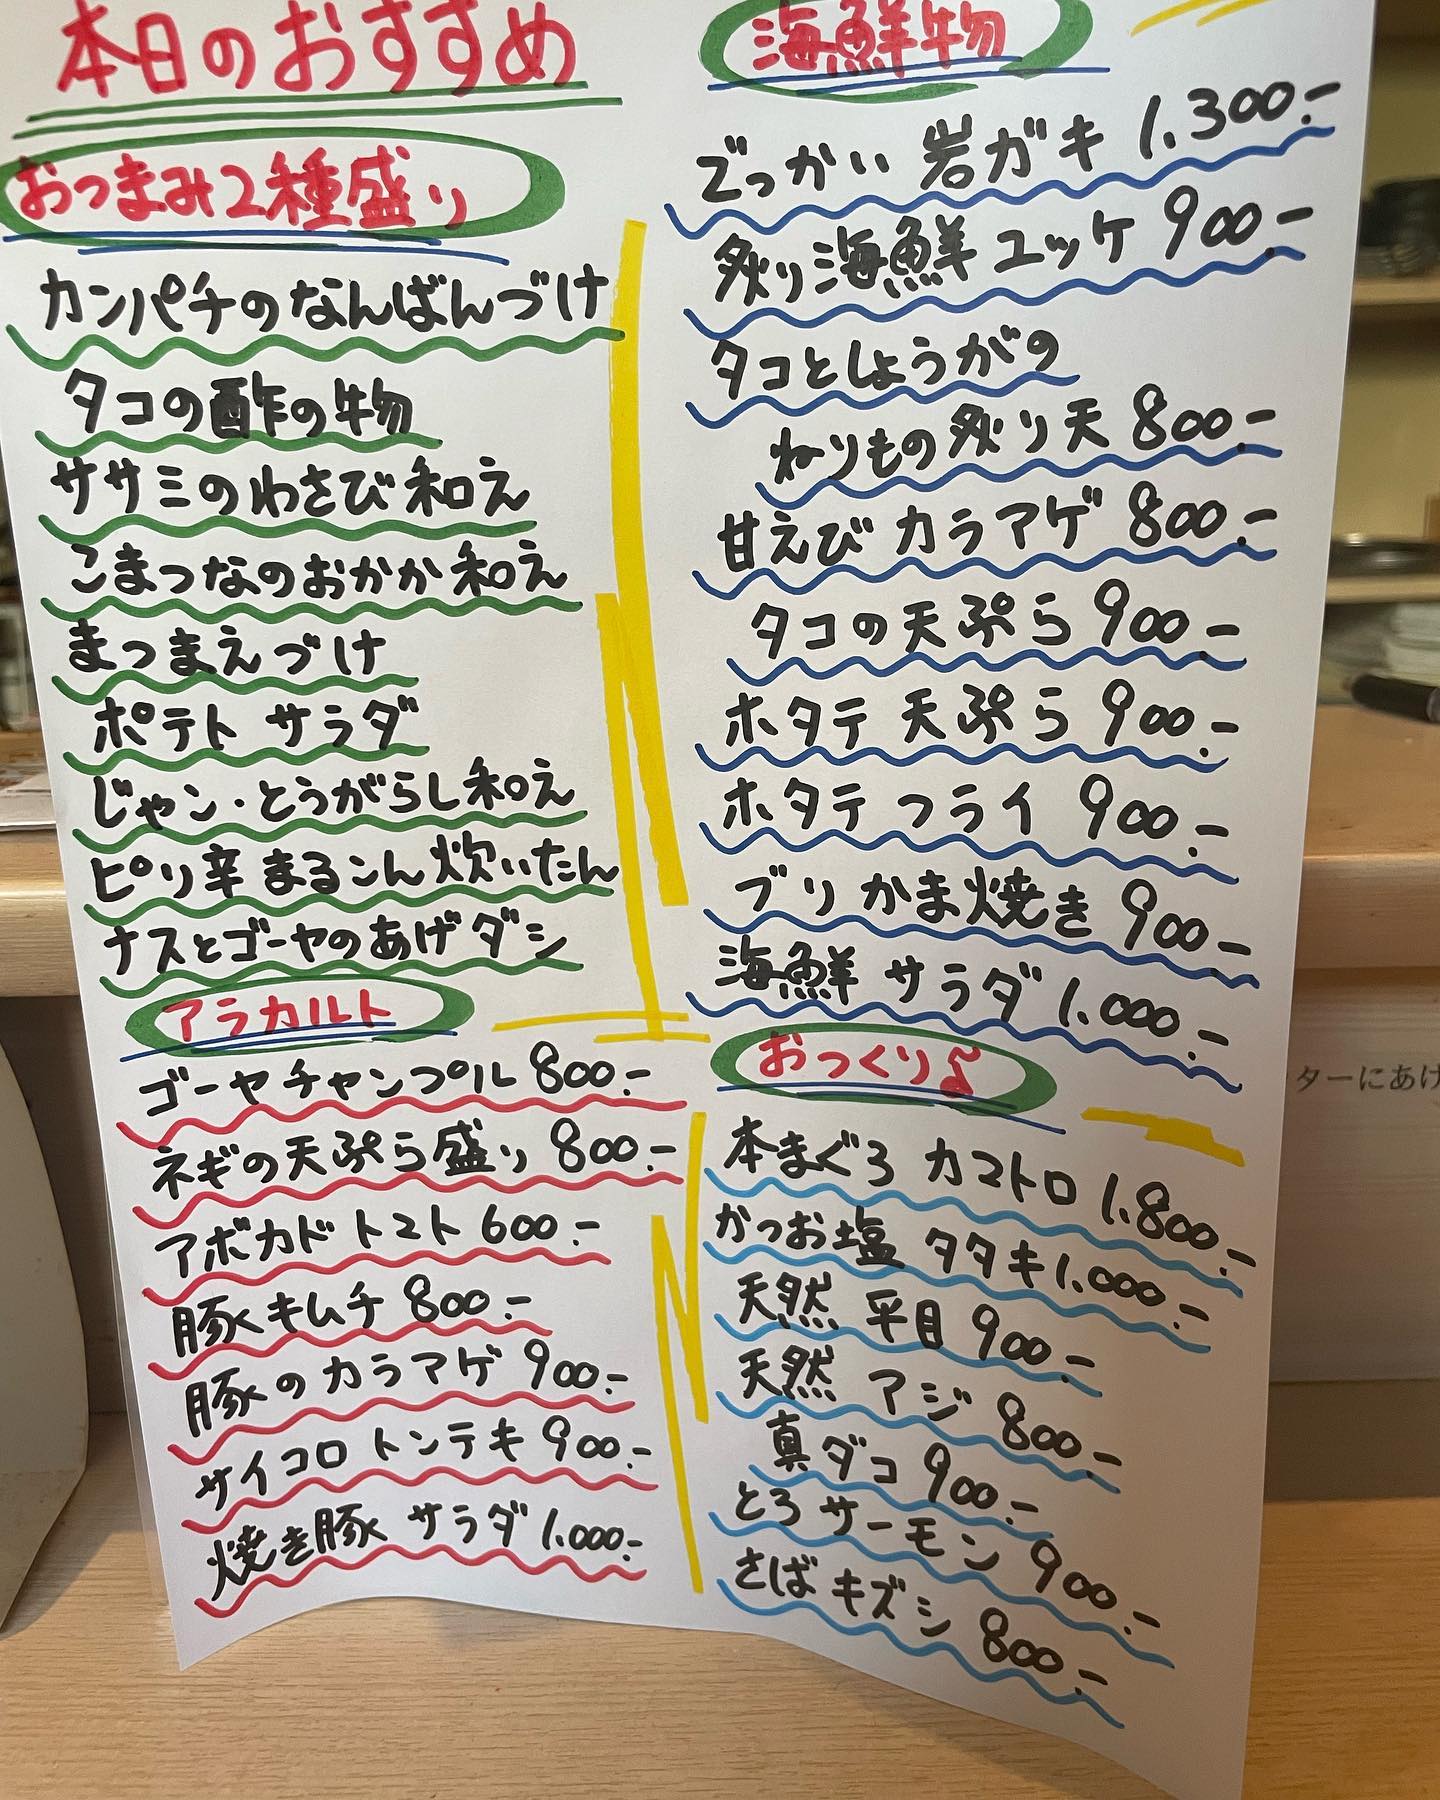 本日のおすすめ
おつまみ2種盛り
カンパチのなんばんづけ
タコの酢の物
ササミのわさび和え
こまつなのおかか和え
まつまえづけ
ポテト サラダ
じゃン・とうがらし和え
ピリ辛 まるこん 炊いたん
ナスとゴーヤのあげダシ
アラカルト
ゴーヤチャンプル 800.-
ネギの天ぷら盛り 800.-
アボカド トマト 600.-
豚キムチ 800.-
豚のカラアゲ 900.-
サイコロ トンテキ 900.-
焼き豚 サラダ 1.000.-
海鮮物
でっかい 岩ガキ 1.300.-
炙り海鮮 ユッケ 900.-
タコとしょうがの
ねりもの炙り天 800.-
甘えび カラアゲ 800.-
タコの天ぷら 900.-
ホタテ 天ぷら 900.-
ホタテ フライ 900.-
ブリ かま焼き 900.-
海鮮 サラダ 1.000.-
おつくり♪
本まぐろ カマトロ 1.800.-
かつお塩 タタキ 1.000.-
天然 平目 900.-
天然 アジ 800.-
真ダコ 900.-
とろサーモン 900.-
さば キズシ 800.-
ターにあけ